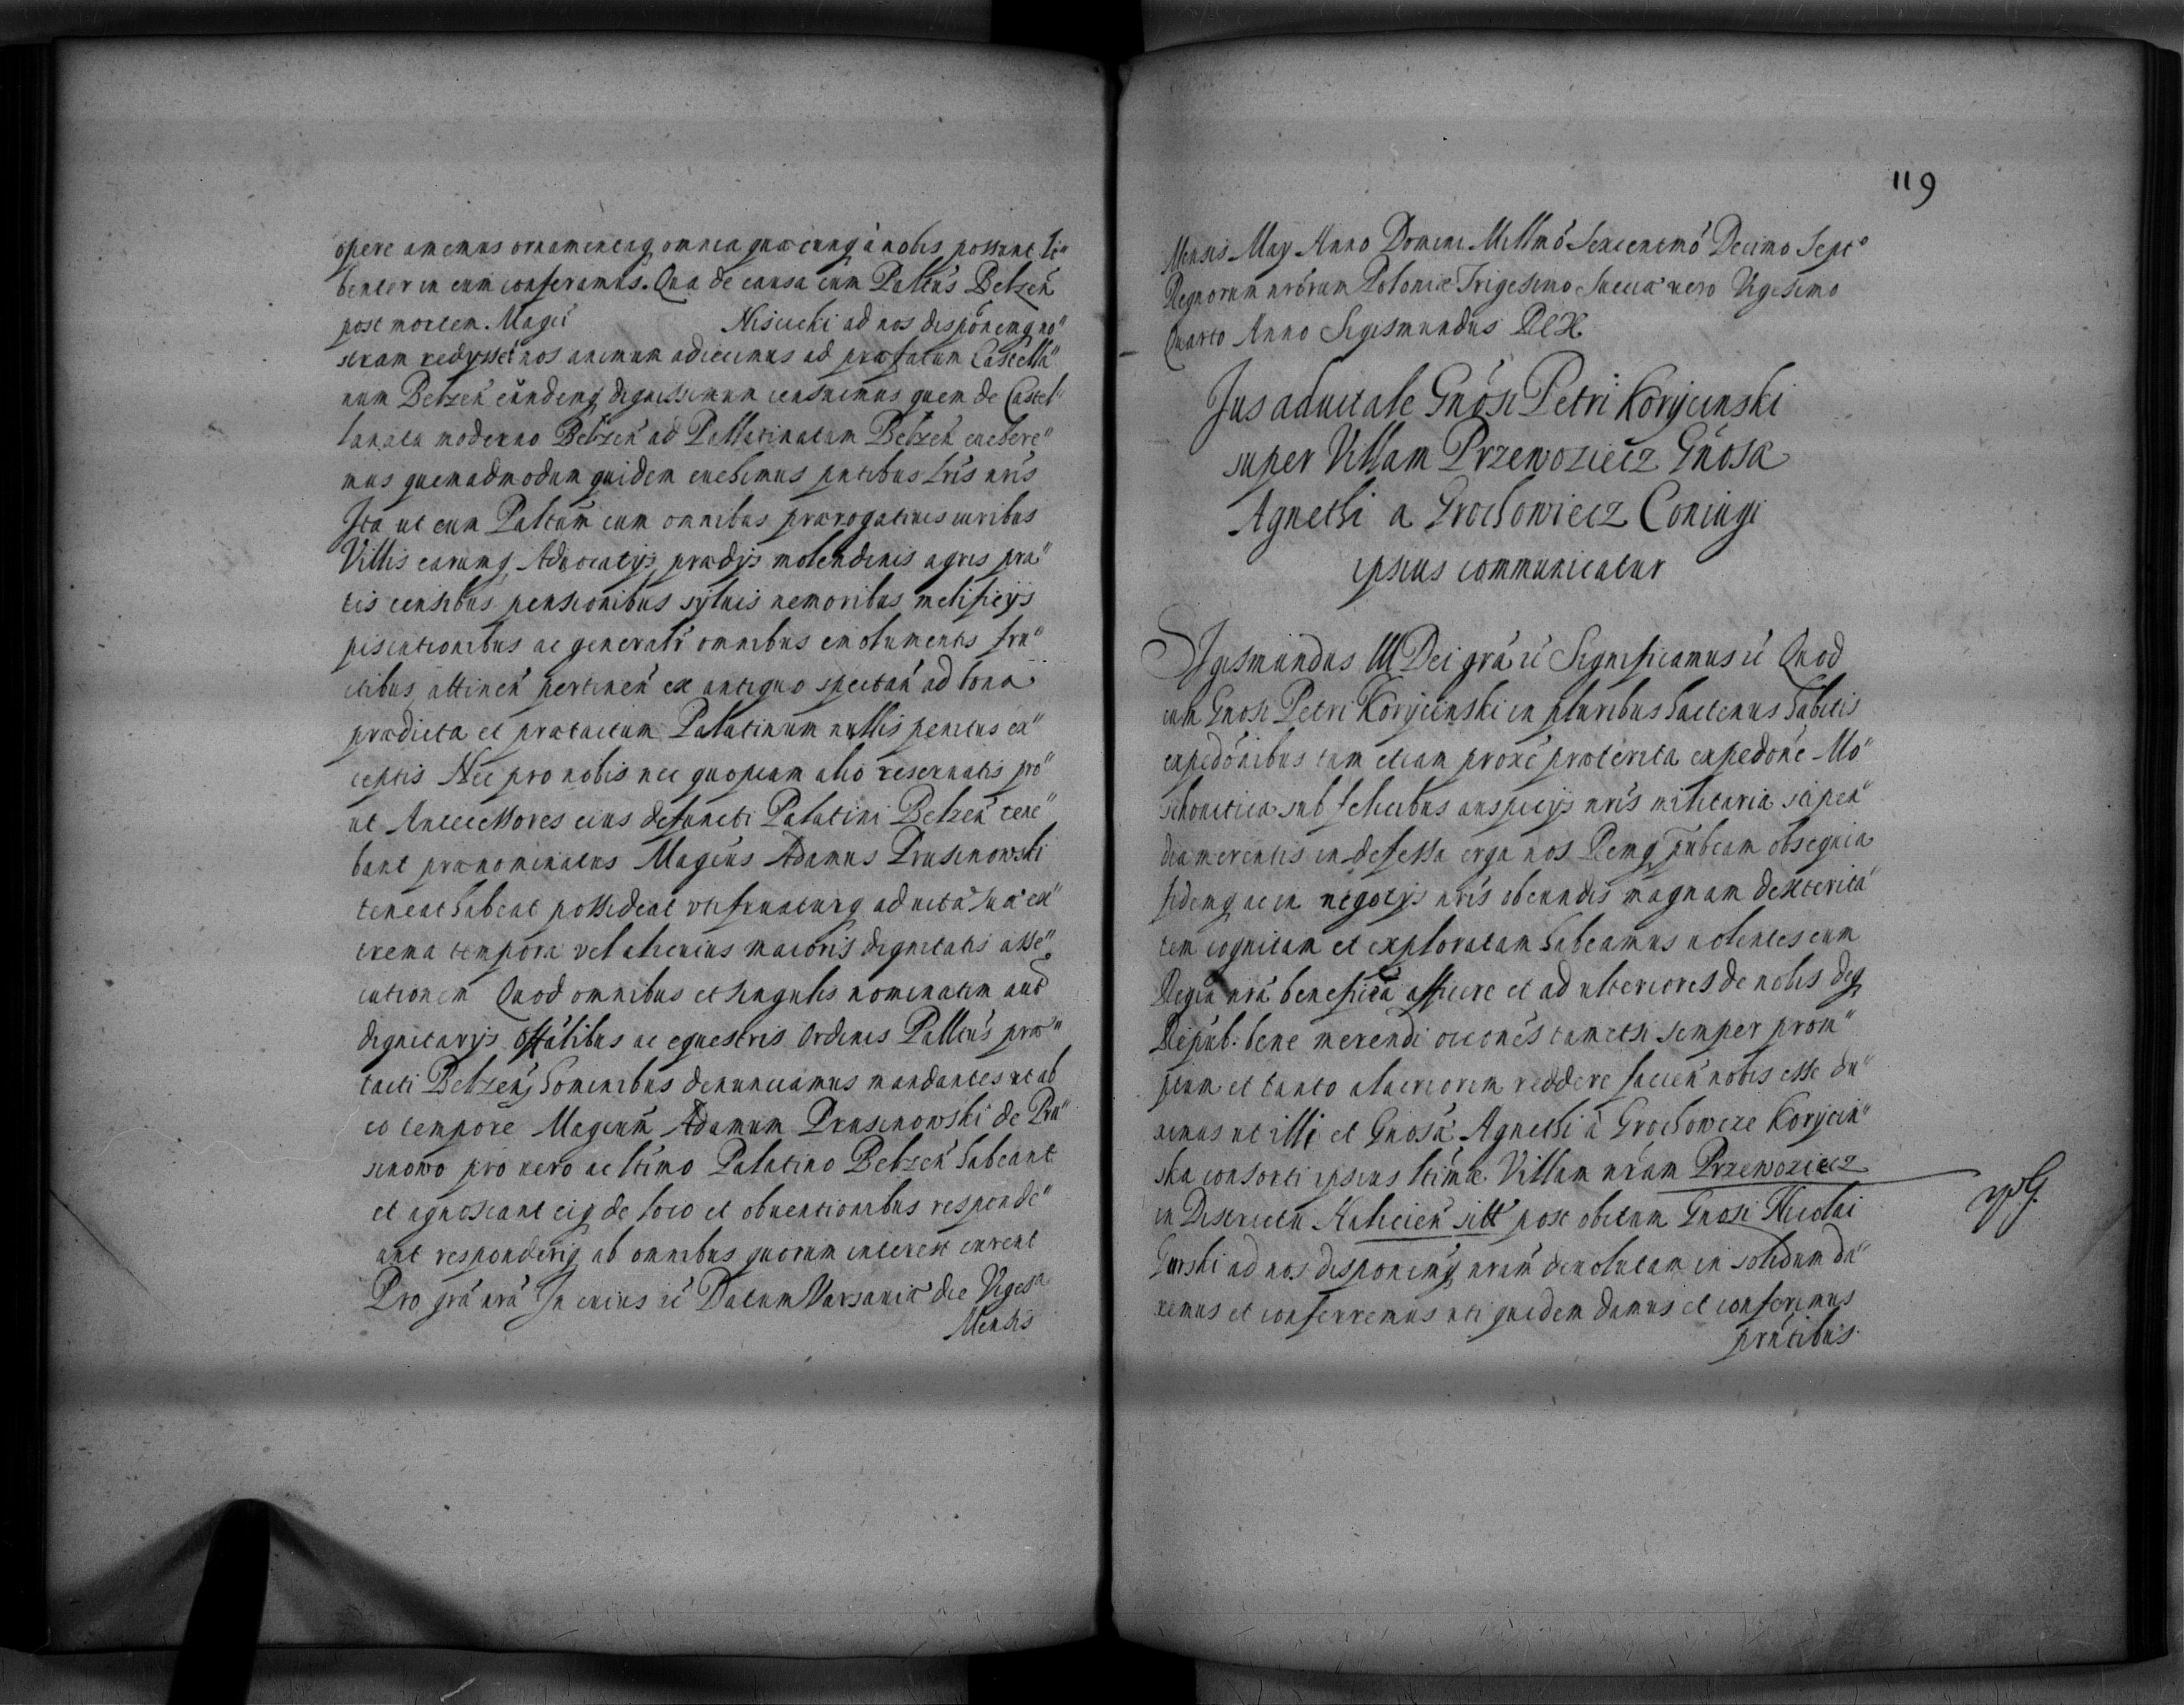 opere amemus ornamentaq omnia quæcunq à nobis possunt li"
benter in eum conferamus. Qua de causa cum Paltus Belzen
post mortem Magci Nisczicki ad nos disponemq no"
stram redysset nos animum adiecimus ad præfatum Castella"
num Belzen eundemq dignissimum censuimus quem de Castel"
lanatu moderno Belzen ad Pallatinatum Belzen evehere"
mus quemadmodum quidem evehimus pntibus lris nris
Ita ut eum Paltum cum omnibus prærogativis iuribus
Villis earumq Advocatijs prædijs molendinis agris pra"
tis censibus pensionibus sylvis nemoribus mellificijs
piscationibus ac generalr omnibus emolumentis fru"
ctibus attinen pertinen ex antiquo spectan ad bona
prædicta et prætactum Palatinum nullis penitus ex"
ceptis Nec pro nobis nec quopiam alio reservatis pro"
ut Antecessores eius defuncti Palatini Belzen tene"
bant prænominatus Magcus Adamus Prusinowski
teneat habeat possideat utifruaturq ad vitæ suæ ex"
trema tempora vel alicuius maioris dignitatis asse"
cutionem Quod omnibus et singulis nominatim aut
dignitarijs offalibus ac equestris Ordinis Paltus præ"
tacti Belzen hominibus denunciamus mandantes ut ab
eo tempore Magcum Adamum Prusinowski de Pru"
sinowo pro vero ac ltimo Palatino Belzen habeant
et agnoscant eiq de loco et obventionibus responde"
ant responderiq ab omnibus quorum interest curent
Pro grã nrã In cuius rei Datum Varsaviæ die Viges
Mensis
119
Mensis May Anno Domini Millmo Sexcentmo Decimo Septo
Regnorum nrorum Poloniæ Trigesimo Sueciæ vero Vigesimo
Quarto Anno Sigismundus REX
Jus advitale Gnosi Petri Koryciński
super Villam Przewoziecz Gnosa
Agnethi a Grochowiecz Coniugi
ipsius communicatur
Sigismundus III Dei grã rc Significamus rc Quod
cum Gnosi Petri Korycinski in pluribus hactenus habitis
expedonibus tum etiam proxe præterita expedone Mo"
schovitica sub felicibus auspicijs nris militaria stipen"
dia merentis indefessa erga nos Remq Pubcam obsequia
fidemq ac in negotijs nris obeundis magnam dexterita"
tem cognitam et exploratam habeamus volentes eum
Regia nrã beneficã afficere et ad ulteriores de nobis deq
Repub: bene merendi occones tametsi semper prom"
ptum et tanto alacriorem reddere facien nobis esse du"
ximus ut illi et Gnosæ Agnethi à Grochowcze Korycin"
ska consorti ipsius ltimæ Villam nram Przewoziecz
in Districtu Halicien sitt post obitum Gnosi Nicolai
Gurski ad nos disponemq nram devolutam in solidum da"
remus et conferremus uti quidem damus et conferimus
prntibus